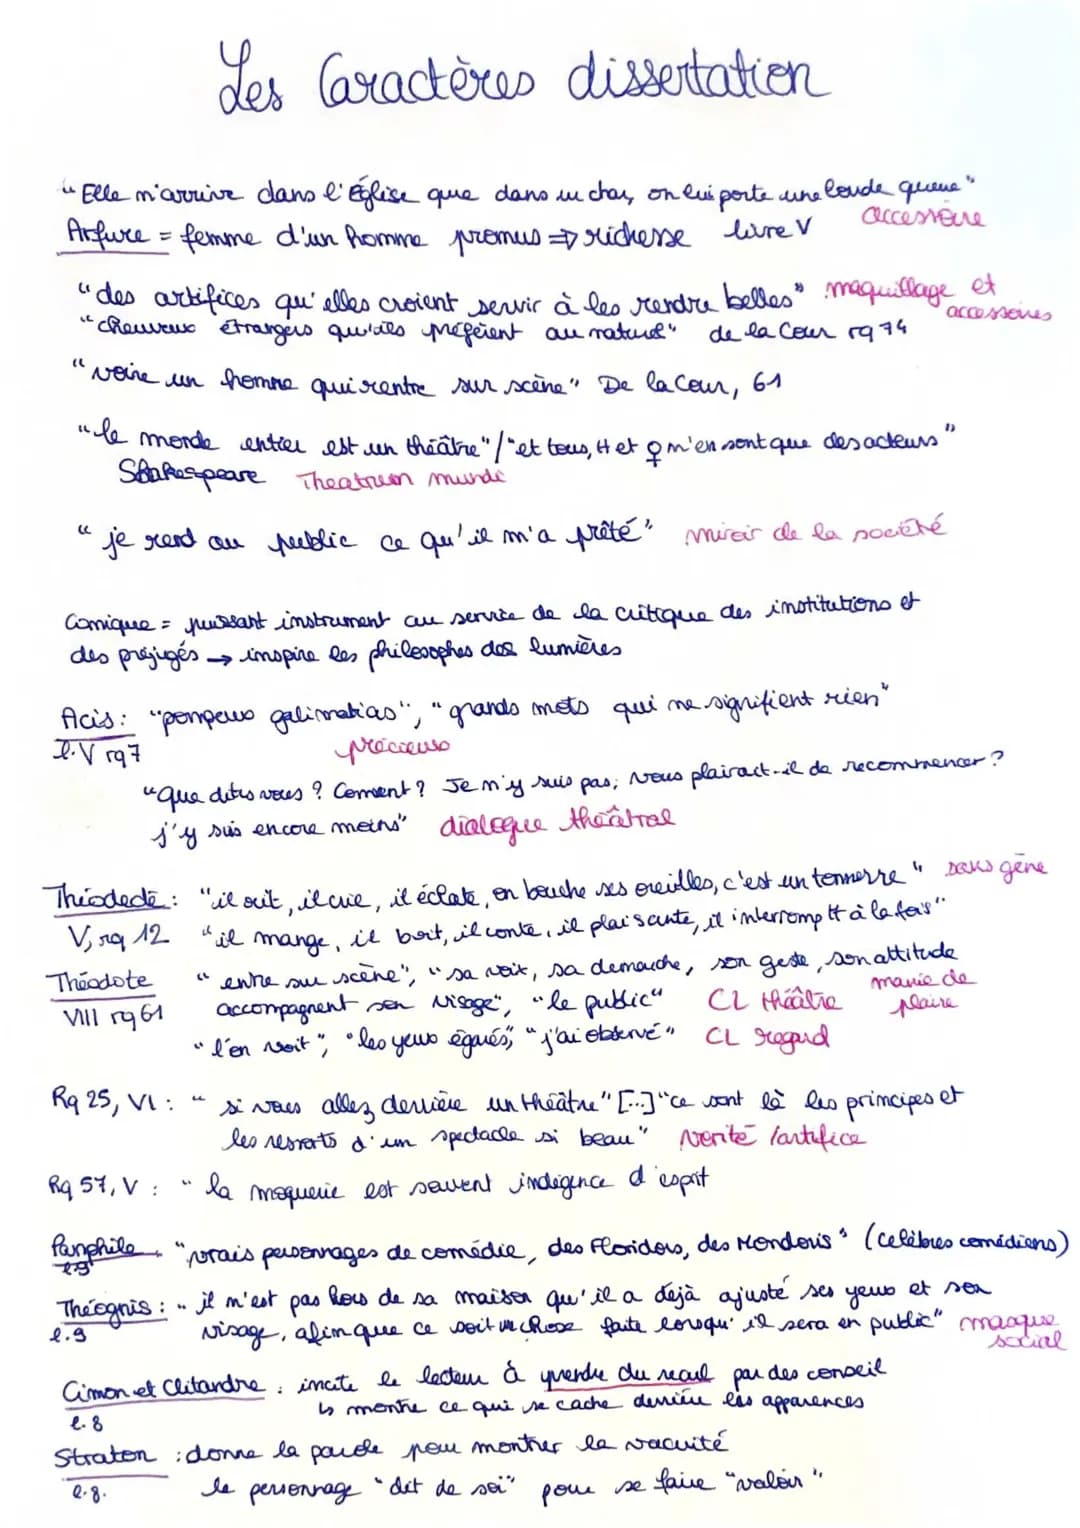 Les Caractères dissertation
"Elle n'arrive dans l'Église que dans un char, on lui porte une lourde queue"
accessoire
Arfure = femme d'un homme promus => richesse livre V
"des artifices qu'elles croient servir à les rendre belles" maquillage et
accessoires
"cheveux étrangers qu'ils préfèrent au naturel" de la Cour rq 74
"voire un homme qui rentre sur scène" De la Cour, 61
"le monde entier est un théâtre"/"et tous, H et ♀ n'en sont que des acteurs"
Shakespeare Theatrum mundi
"je rend au public ce qu'il m'a prêté" miroir de la société
Comique = puissant instrument au service de la critique des institutions et
des préjugés → inspire les philosophes des lumières
Acis : "pompeux galimatias", "grands mots qui ne signifient rien"
l.V rq7 précieux
"Que dites vous ? Comment ? Je n'y suis pas ; vous plairait-il de recommencer ?
j'y suis encore moins" dialogue théâtral
Théodecte : "il rit, il crie, il éclate, on bouche ses oreilles, c'est un tonnerre" sans gêne
V, rq 12 "il mange, il boit, il conte, il plaisante, il interromp tt à la fois"
Théodote "entre sur scène", "sa voix, sa demarche, son geste, son attitude
VIII rq 61 accompagnent son visage", "le public" CL théâtre manie de
plaire
"l'on voit", "les yeux égarés", "j'ai observé" CL regard
Rq 25, VI : "si vous allez derrière un théâtre" [...] "ce sont là les principes et
les ressorts d'un spectacle si beau" vérité /artifice
Rq 57, V : "la moquerie est souvent indigence d'esprit
Pamphile "vrais personnages de comédie, des Floridors, des Mondoris" (célèbres comédiens)
l.9
Théognis : "il n'est pas hors de sa maison qu'il a déjà ajusté ses yeux et son
l.9 visage, afin que ce soit une chose faite lorsqu'il sera en public" masque
social
Cimon et Clitandre : incite le lecteur à prendre du recul par des conseil
l.8 ↳ montre ce qui se cache derrière les apparences
Straton : donne la parole pour montrer la vacuité
l.8. le personnage "dit de soi" pour se faire "valoir"